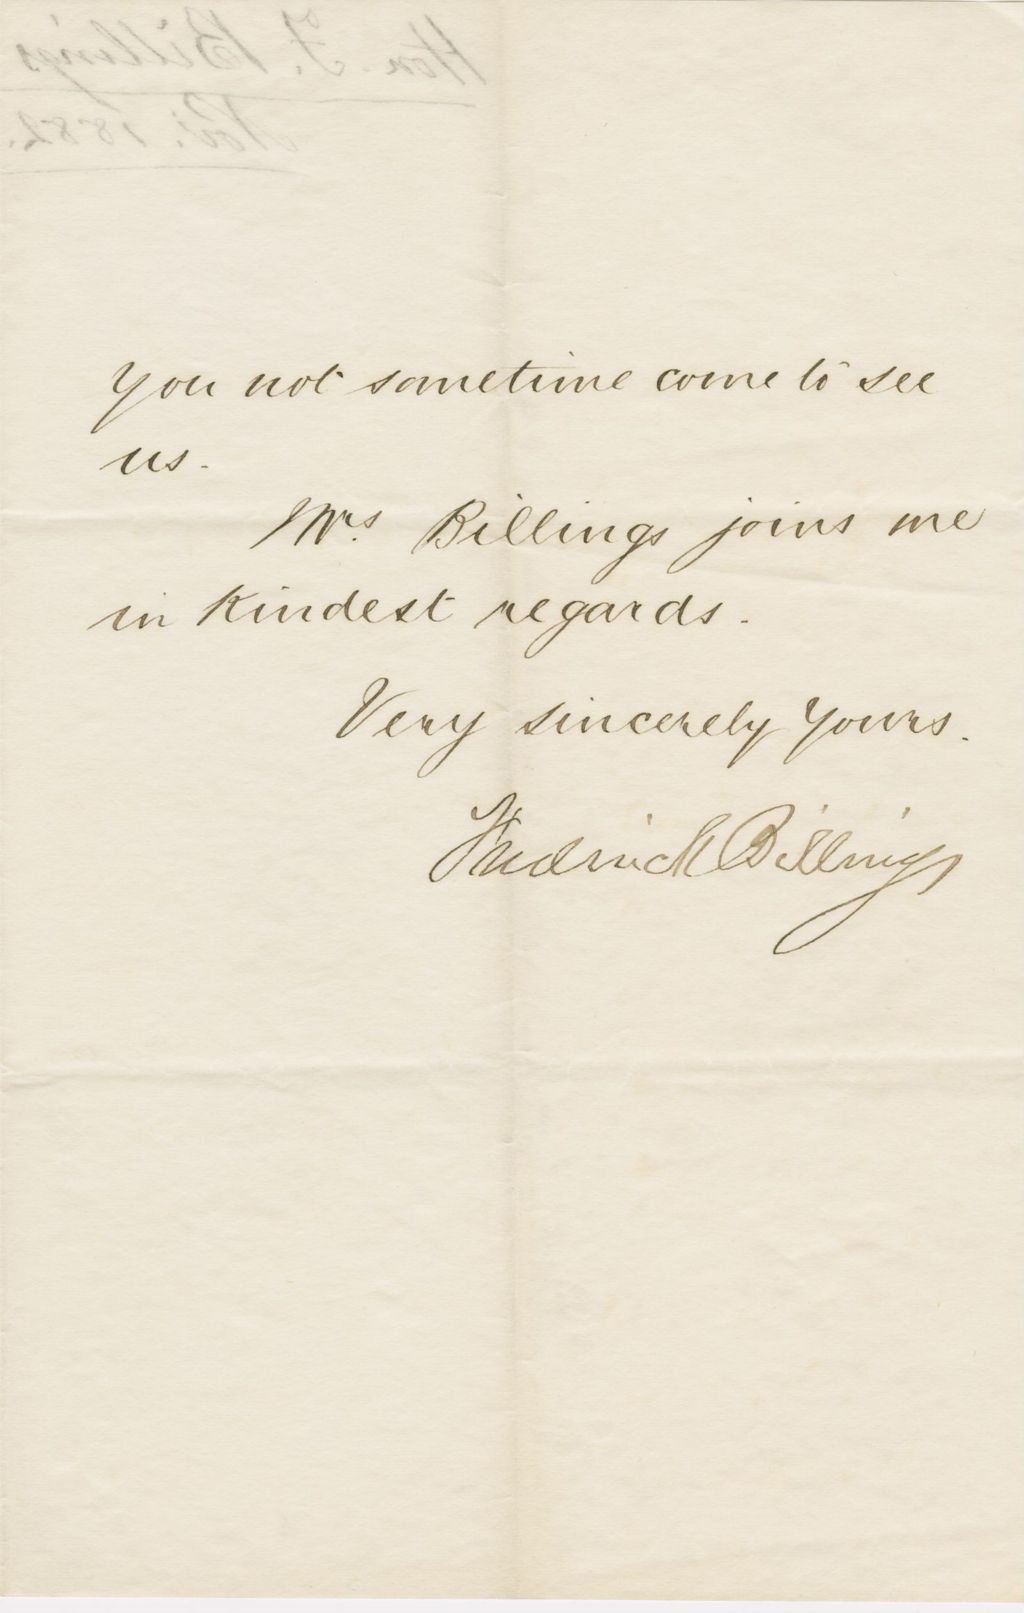 Hon. F. Billings
Nov. 1882.
you not sometime come to see
us.
Mrs. Billings joins me
in kindest regards.
Very sincerely yours.
Fredrick Billings